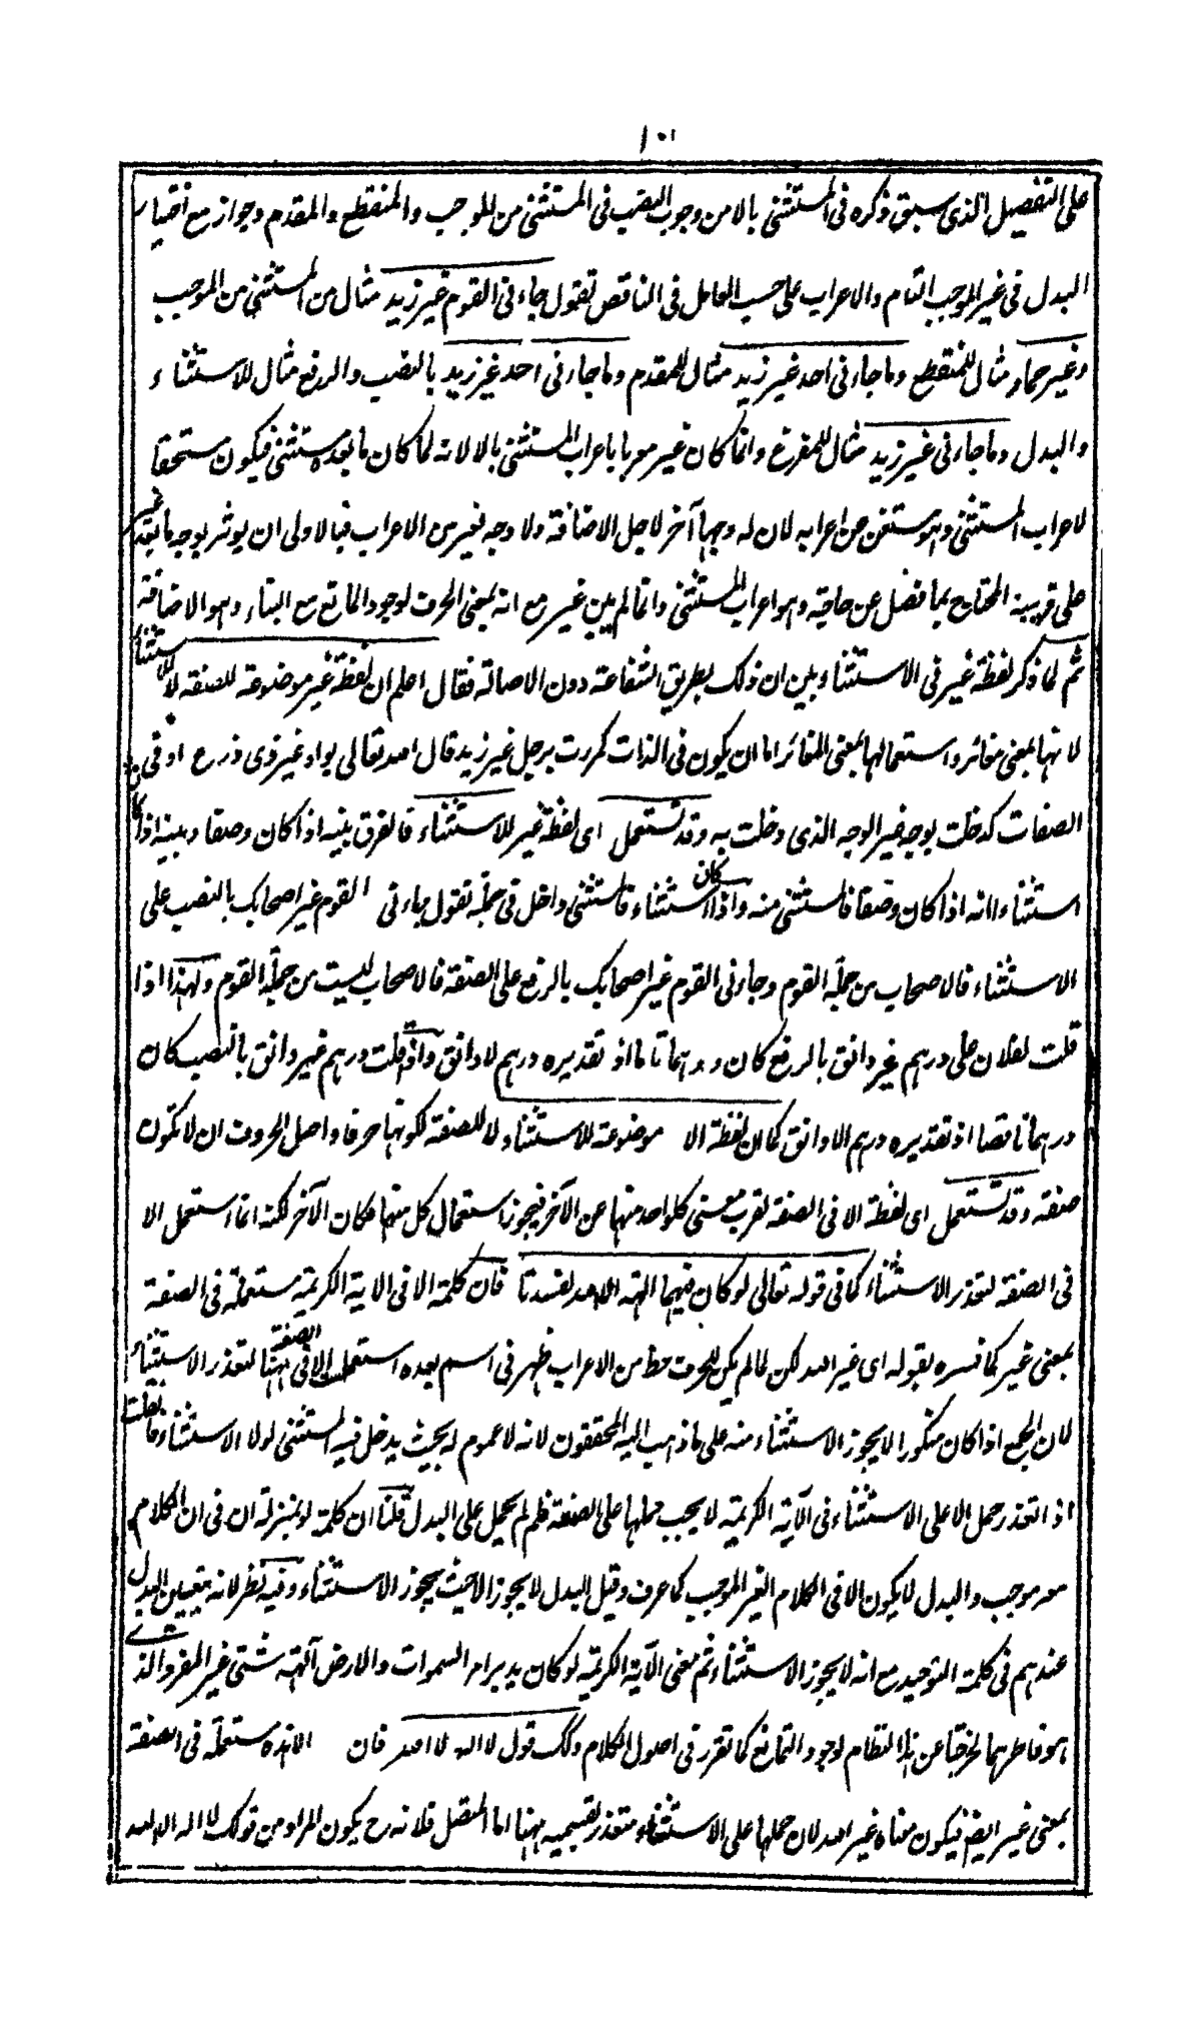 ١٠١
على التفصيل الذى سبق ذكره فى المستثنى بالا من وجوب النصب فى المستثنى من الموجب والمنقطع والمقدم وجوازه مع اختيار
البدل فى غير الموجب التام والاعراب على حسب العامل فى الناقص تقول جاءنى القوم غير زيد مثال من المستثنى من الموجب
وغير حمار مثال للمنقطع وما جاءنى احد غير زيد مثال للمقدم وما جاءنى احد غير زيد بالنصب والرفع مثال للاستثناء
والبدل وما جاءنى غير زيد مثال للمفرغ وانما كان غير معربا باعراب المستثنى بالا لانه لما كان ما بعده مستثنى فيكون مستحقا
لاعراب المستثنى وهو مستغن عن اعرابه لان له وجها آخر لاجل الاضافة ولا وجه لغير من الاعراب فبالاولى ان يوثر بوجه ما بعد غير
على قريبه المحتاج بما فضل عن حاجته وهو اعراب المستثنى وانما لم يبن غير مع انه بمعنى الحرف لوجود المانع مع البناء وهو الاضافة
ثم لما ذكر لفظة غير فى الاستثناء وبين ان ذلك بطريق الشفاعة دون الاصالة فقال اعلم ان لفظة غير موضوعة للصفة لا للاستثناء
لانها بمعنى مغائر واستعمالها بمعنى المغائر اما ان يكون فى الذات كمررت برجل غير زيد قال الله تعالى بواد غير ذى زرع او فى
الصفات كدخلت بوجه غير الوجه الذى دخلت به وقد تستعمل اى لفظة غير للاستثناء فالفرق بينه اذا كان وصفا وبينه اذا كان
استثناء انه اذا كان وصفا فالمستثنى منه واذا كان استثناء فالمستثنى داخل فى جملة تقول جاءنى القوم غير اصحابك بالنصب على
الاستثناء فالاصحاب من جملة القوم وجاءنى القوم غير اصحابك بالرفع على الصفة فالاصحاب ليست من جملة القوم ولهذا اذا
قلت لفلان على درهم غير دانق بالرفع كان درهما تاما اذ تقديره درهم لا دانق واذا قلت درهم غير دانق بالنصب كان
درهما ناقصا اذ تقديره درهم الا دانق كما ان لفظة الا موضوعة للاستثناء لا للصفة لكونها حرفا واصل الحروف ان لا تكون
صفة وقد تستعمل اى لفظة الا فى الصفة لقرب معنى كلواحد منهما عن الآخر فيجوز استعمال كل منهما مكان الآخر لكنه انما استعمل الا
فى الصفة لتعذر الاستثناء كما فى قوله تعالى لو كان فيهما الهة الا الله لفسدتا فان كلمة الا فى الاية الكريمة مستعملة فى الصفة
بمعنى غير كما فسره بقوله اى غير الله لكن لما لم يكن للحرف حظ من الاعراب ظهر فى اسم بعده استعملت الا فى الصفة ههنا لتعذر الاستثناء
لان الجمع اذا كان منكورا لا يجوز الاستثناء منه على ما ذهب اليه المحققون لانه لا عموم له بحيث يدخل فيه المستثنى لولا الاستثناء فان قلت
اذا تعذر حمل الا على الاستثناء فى الآية الكريمة لا يجب حملها على الصفة فلم لم يحمل على البدل قلنا ان كلمة لو بمنزلة ان فى ان الكلام
معه موجب والبدل لا يكون الا فى الكلام الغير الموجب كما عرف وقيل البدل لا يجوز الا حيث يجوز الاستثناء وفيه نظر لانه يتعين البدل
عندهم فى كلمة التوحيد مع انه لا يجوز الاستثناء ثم معنى الآية الكريمة لو كان يدبر امر السموات والارض آلهة شتى غير المفرد الذى
هو فاطرهما لخرجتا عن هذا النظام لوجود التمانع كما تقرر فى اصول الكلام وكذلك قول لا اله الا الله فان الا هذه مستعملة فى الصفة
بمعنى غير ايضا فيكون معناه غير الله لان حملها على الاستثناء متعذر بقسميه ههنا اما المتصل فلانه ح يكون المراد من قولك لا اله الا الله